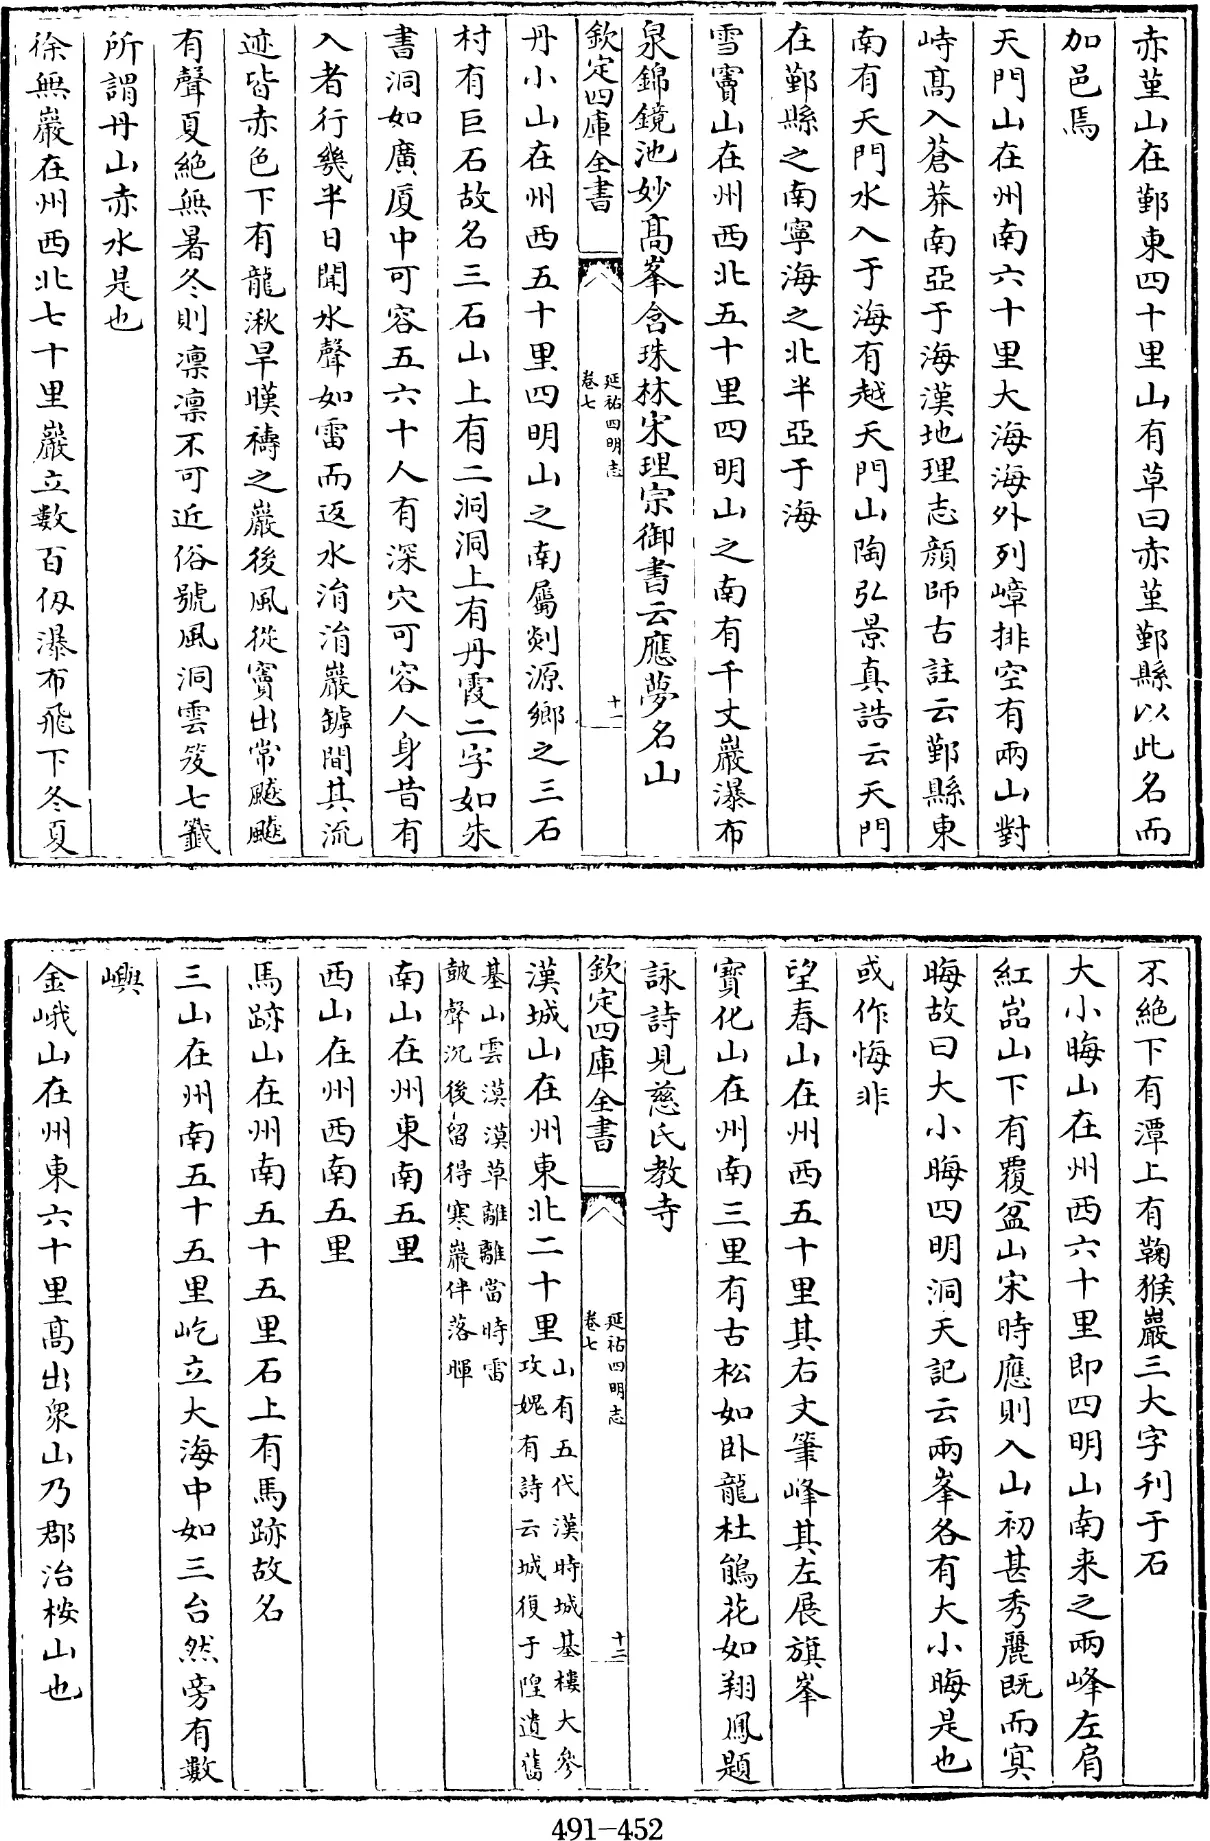 赤堇山在鄞東四十里山有草曰赤堇鄞縣以此名而
加邑焉
天門山在州南六十里大海海外列嶂排空有兩山對
峙髙入蒼莽南亞于海漢地理志顔師古註云鄞縣東
南有天門水入于海有越天門山陶弘景真誥云天門
在鄞縣之南寧海之北半亞于海
雪竇山在州西北五十里四明山之南有千丈巖瀑布
泉錦鏡池妙髙峯含珠林宋理宗御書云應夢名山
欽定四庫全書
延祐四明志
卷七
十一
丹小山在州西五十里四明山之南屬剡源鄉之三石
村有巨石故名三石山上有二洞洞上有丹霞二字如朱
書洞如廣厦中可容五六十人有深穴可容人身昔有
入者行幾半日聞水聲如雷而返水湝湝巖罅間其流
迹皆赤色下有龍湫旱暵禱之巖後風從竇出常颼颼
有聲夏絶無暑冬則凛凛不可近俗號風洞雲笈七籖
所謂丹山赤水是也
徐無巖在州西北七十里巖立數百仭瀑布飛下冬夏
不絶下有潭上有鞠猴巖三大字刋于石
大小晦山在州西六十里即四明山南来之兩峰左肩
紅嵓山下有覆盆山宋時應則入山初甚秀麗既而㝠
晦故曰大小晦四明洞天記云兩峯各有大小晦是也
或作悔非
望春山在州西五十里其右文筆峰其左展旗峯
寳化山在州南三里有古松如卧龍杜鵑花如翔鳳題
詠詩見慈氏教寺
欽定四庫全書
延祐四明志
卷七
十二
漢城山在州東北二十里山有五代漢時城基樓大參
攻媿有詩云城復于隍遺舊
基山雲漠漠草離離當時雷
皷聲沉後留得寒巖伴落暉
南山在州東南五里
西山在州西南五里
馬跡山在州南五十五里石上有馬跡故名
三山在州南五十五里屹立大海中如三台然旁有數
嶼
金峨山在州東六十里髙出衆山乃郡治桉山也
491-452